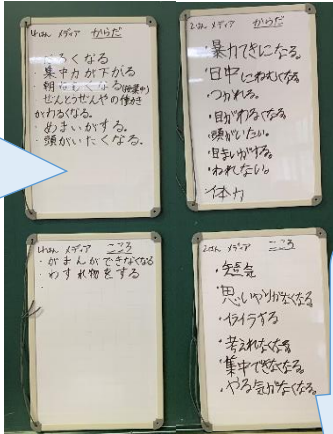 1はん メディア からだ
・わるくなる
・集中力が下がる
・朝ねむくなる(授業中)
・ぜんとうぜんやの働き
がわるくなる。
・めまいがする。
・頭がいたくなる。
2はん メディア からだ
・暴力てきになる。
・日中にねむくなる
・つかれる。
・目がわるくなる
・頭がいたい。
・目まいがする。
・ねれない。
体力
1はん メディア こころ
・がまんができなくなる
・わすれ物をする
2はん メディア こころ
・短気
・思いやりがなくなる
・イライラする
・考えれなくなる
・集中できなくなる。
・やる気がなくなる。